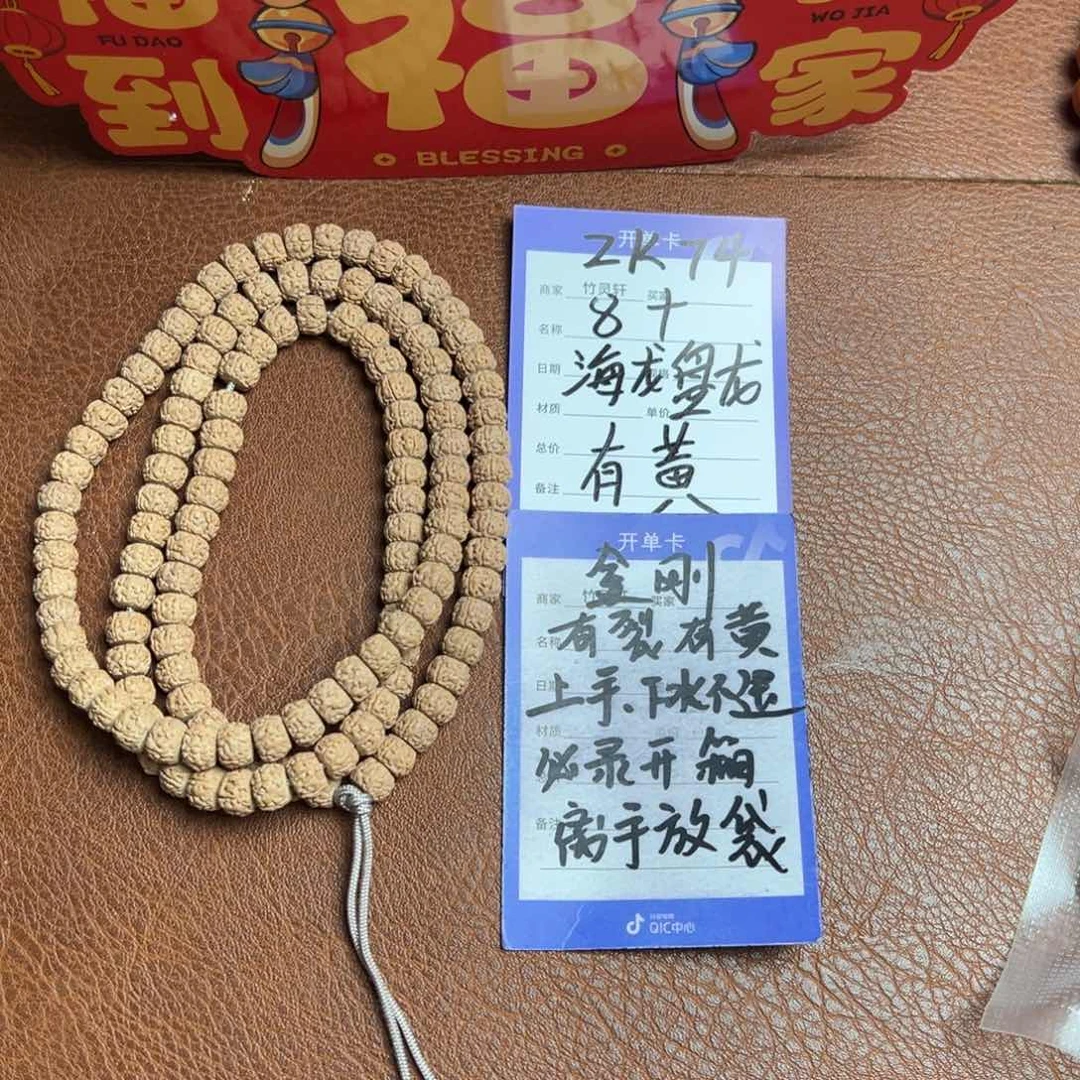 FU DAO
福
WO JIA
到
家
BLESSING
开单卡
ZK 74
商家 竹灵轩 买家
8十
名称
日期
海龙盘龙
材质 单价
总价
有黄
备注
开单卡
金刚
商家 竹 买家
有裂有黄
名称
上手、下水不退
日期
材质
必录开箱
备注
离手放袋
QIC中心